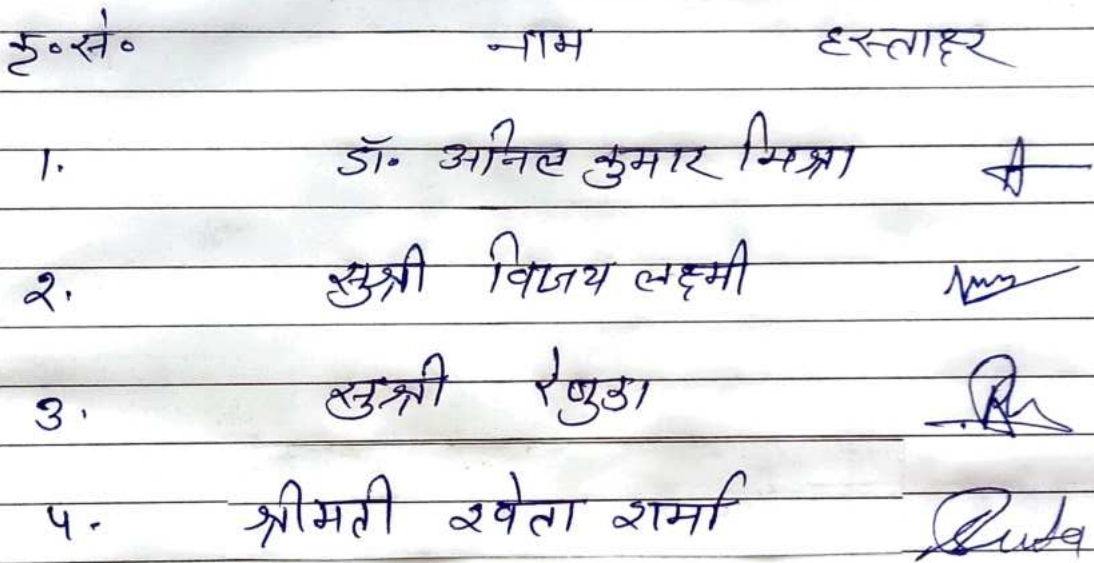 क्र०सं० नाम हस्ताक्षर
1. डॉ० अनिल कुमार मिश्रा
2. सुश्री विजय लक्ष्मी
3. सुश्री रेणुका
4. श्रीमती श्वेता शर्मा